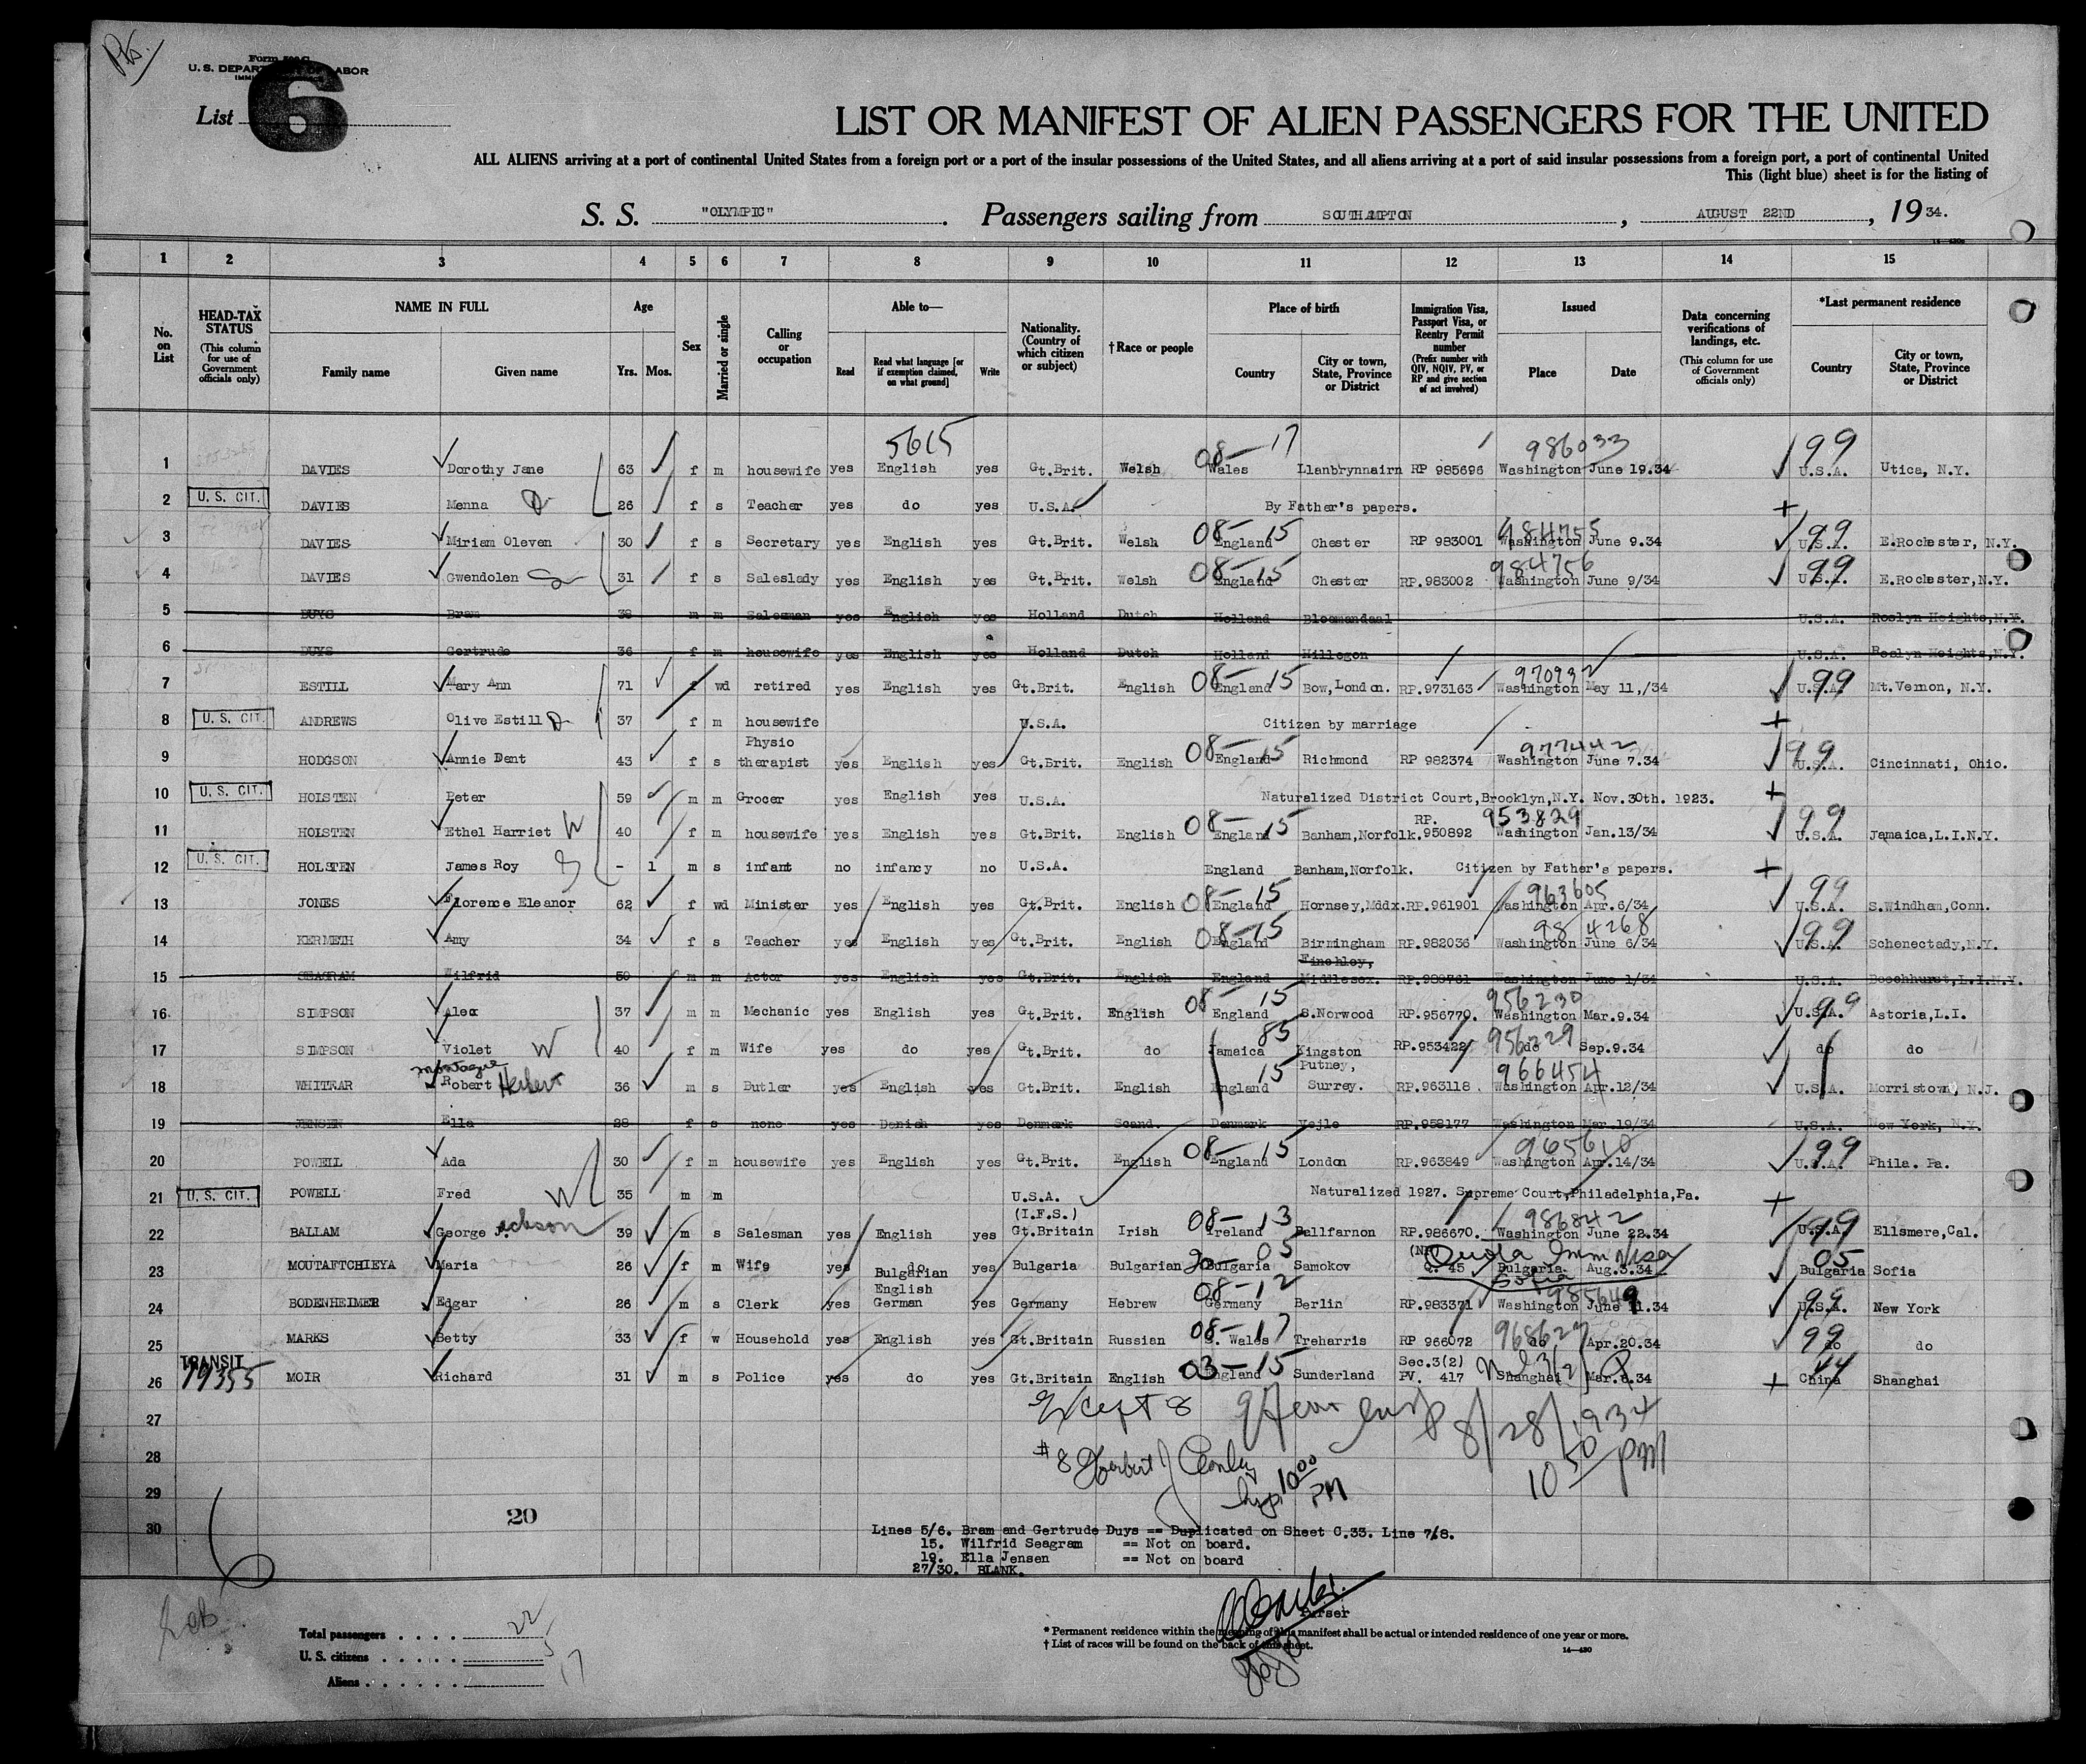 Form 500 C
U. S. DEPARTMENT OF LABOR
List 6
LIST OR MANIFEST OF ALIEN PASSENGERS FOR THE UNITED
ALL ALIENS arriving at a port of continental United States from a foreign port or a port of the insular possessions of the United States, and all aliens arriving at a port of said insular possessions from a foreign port, a port of continental United
This (light blue) sheet is for the listing of
S. S. "OLYMPIC" . Passengers sailing from SOUTHAMPTON , AUGUST 22ND , 19 34.
1 2 3 4 5 6 7 8 9 10 11 12 13 14 15
No. on List
HEAD-TAX STATUS (This column for use of Government officials only)
NAME IN FULL Family name Given name
Age Yrs. Mos.
Sex
Married or single
Calling or occupation
Able to— Read Read what language [or if exemption claimed, on what ground] Write
Nationality. (Country of which citizen or subject)
†Race or people
Place of birth Country City or town, State, Province or District
Immigration Visa, Passport Visa, or Reentry Permit number (Prefix number with QIV, NQIV, PV, or RP and give section of act involved)
Issued Place Date
Data concerning verifications of landings, etc. (This column for use of Government officials only)
*Last permanent residence Country City or town, State, Province or District
5615 08-17 986033 99
1 DAVIES Dorothy Jane 63 f m housewife yes English yes Gt.Brit. Welsh Wales Llanbrynnairn RP 985696 Washington June 19.34 U.S.A. Utica, N.Y.
2 U. S. CIT. DAVIES Menna D 26 f s Teacher yes do yes U.S.A. By Father's papers.
08-15 984755 99
3 DAVIES Miriam Oleven 30 f s Secretary yes English yes Gt.Brit. Welsh England Chester RP 983001 Washington June 9.34 U.S.A. E.Rochester, N.Y.
08-15 984756 99
4 DAVIES Gwendolen 31 f s Saleslady yes English yes Gt.Brit. Welsh England Chester RP.983002 Washington June 9/34 U.S.A. E.Rochester,N.Y.
5 DUYS Bram 38 m m Salesman yes English yes Holland Dutch Holland Bloemendaal U.S.A. Roslyn Heights,N.Y.
6 DUYS Gertrude 36 f m housewife yes English yes Holland Dutch Holland Hillegon U.S.A. Roslyn Heights,N.Y.
08-15 970932 99
7 ESTILL Mary Ann 71 f wd retired yes English yes Gt.Brit. English England Bow,London. RP.973163 Washington May 11,/34 U.S.A. Mt.Vernon, N.Y.
8 U. S. CIT. ANDREWS Olive Estill D 37 f m housewife U.S.A. Citizen by marriage
08-15 977442 99
9 HODGSON Annie Dent 43 f s Physio therapist yes English yes Gt.Brit. English England Richmond RP 982374 Washington June 7.34 U.S.A. Cincinnati, Ohio.
10 U. S. CIT. HOLSTEN Peter 59 m m Grocer yes English yes U.S.A. Naturalized District Court,Brooklyn,N.Y. Nov.30th. 1923.
08-15 953829 99
11 HOLSTEN Ethel Harriet W 40 f m housewife yes English yes Gt.Brit. English England Banham,Norfolk. RP. 950892 Washington Jan.13/34 U.S.A. Jamaica,L.I.N.Y.
12 U. S. CIT. HOLSTEN James Roy - 1 m s infant no infancy no U.S.A. England Banham,Norfolk. Citizen by Father's papers.
08-15 963605 99
13 JONES Florence Eleanor 62 f wd Minister yes English yes Gt.Brit. English England Hornsey,Mddx. RP.961901 Washington Apr.6/34 U.S.A. S.Windham,Conn.
08-15 984268 99
14 KERMETH Amy 34 f s Teacher yes English yes Gt.Brit. English England Birmingham RP.982036 Washington June 6/34 U.S.A. Schenectady,N.Y.
15 SEAGRAM Wilfrid 50 m m Actor yes English yes Gt.Brit. English England Finchley, Middlesex. RP.980761 Washington June 1/34 U.S.A. Beechhurst,L.I.N.Y.
08-15 956230 99
16 SIMPSON Alex 37 m m Mechanic yes English yes Gt.Brit. English England S.Norwood RP.956770. Washington Mar.9.34 U.S.A. Astoria,L.I.
85 956229
17 SIMPSON Violet W 40 f m Wife yes do yes Gt.Brit. do Jamaica Kingston RP.953422 do Sep.9.34 do do
Montague 15 966454
18 WHITEAR Robert Herbert 36 m s Butler yes English yes Gt.Brit. English England Putney, Surrey. RP.963118 Washington Apr.12/34 U.S.A. Morristown, N.J.
19 JENSEN Ella 28 f s none yes Danish yes Denmark Scand. Denmark Vejle RP.958177 Washington Mar.19/34 U.S.A. New York, N.Y.
08-15 965610 99
20 POWELL Ada 30 f m housewife yes English yes Gt.Brit. English England London RP.963849 Washington Apr.14/34 U.S.A. Phila. Pa.
21 U. S. CIT. POWELL Fred W 35 m m U.S.A. Naturalized 1927. Supreme Court,Philadelphia,Pa.
08-13 986842 99
22 BALLAM George J. ackson 39 m s Salesman yes English yes (I.F.S.) Gt.Britain Irish Ireland Ballfarnon RP.986670. Washington June 22.34 U.S.A. Ellsmere,Cal.
05 Quota Imm Visa 05
23 MOUTAFTCHIEYA Maria 26 f m Wife yes do Bulgarian yes Bulgaria Bulgarian Bulgaria Samokov Q. 45 Bulgaria Sofia Aug.3.34 Bulgaria Sofia
08-12 985649 99
24 BODENHEIMER Edgar 26 m s Clerk yes English German yes Germany Hebrew Germany Berlin RP.983371 Washington June 11.34 U.S.A. New York
08-17 968627 99
25 MARKS Betty 33 f w Household yes English yes Gt.Britain Russian S. Wales Treharris RP 966072 do Apr.20.34 do do
TRANSIT 03-15 44
26 79355 MOIR Richard 31 m s Police yes do yes Gt.Britain English England Sunderland Sec.3(2) PV. 417 Shanghai Mar.8.34 China Shanghai
27 Except 8 8/28/1934
28 #8 Herbert 10 50 PM
29 10 00 PM
20
30
Lines 5/6. Bram and Gertrude Duys == Duplicated on Sheet C.33. Line 7/8.
15. Wilfrid Seagram == Not on board.
19. Ella Jensen == Not on board
27/30. BLANK.
Purser
Total passengers . . . . 22
U. S. citizens . . . . . 5
Aliens . . . . . . 17
* Permanent residence within the meaning of this manifest shall be actual or intended residence of one year or more.
† List of races will be found on the back of this sheet.
14—430